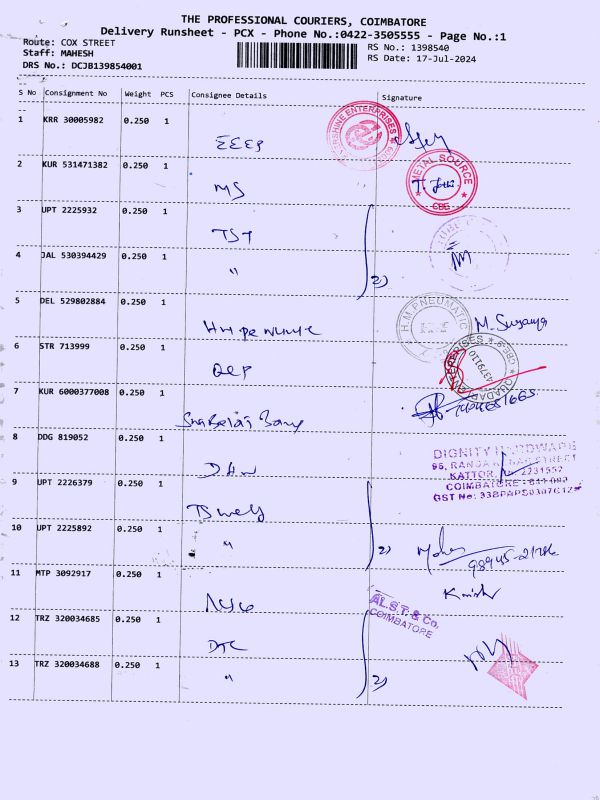 THE PROFESSIONAL COURIERS, COIMBATORE
Delivery Runsheet - PCX - Phone No.:0422-3505555 - Page No.:1
Route: COX STREET
RS No.: 1398540
Staff: MAHESH
RS Date: 17-Jul-2024
DRS No.: DCJB139854001
S No Consignment No Weight PCS Consignee Details Signature
1 KRR 30005982 0.250 1
ENTERPRISES
2 KUR 531471382 0.250 1 MS
METAL SOURCE
CBE
3 UPT 2225932 0.250 1 TST
4 JAL 530394429 0.250 1 "
2)
5 DEL 529802884 0.250 1
H.M. PNEUMATIC
M. Suganya
6 STR 713999 0.250 1
4379110
7 KUR 6000377008 0.250 1
8 DDG 819052 0.250 1
DIGNITY HARDWARE
KATTOR
2731552
COIMBATORE
GST No:
9 UPT 2226379 0.250 1
10 UPT 2225892 0.250 1 "
2)
11 MTP 3092917 0.250 1
12 TRZ 320034685 0.250 1 DTC
AL.S.T. & Co.
COIMBATORE
13 TRZ 320034688 0.250 1 "
2)